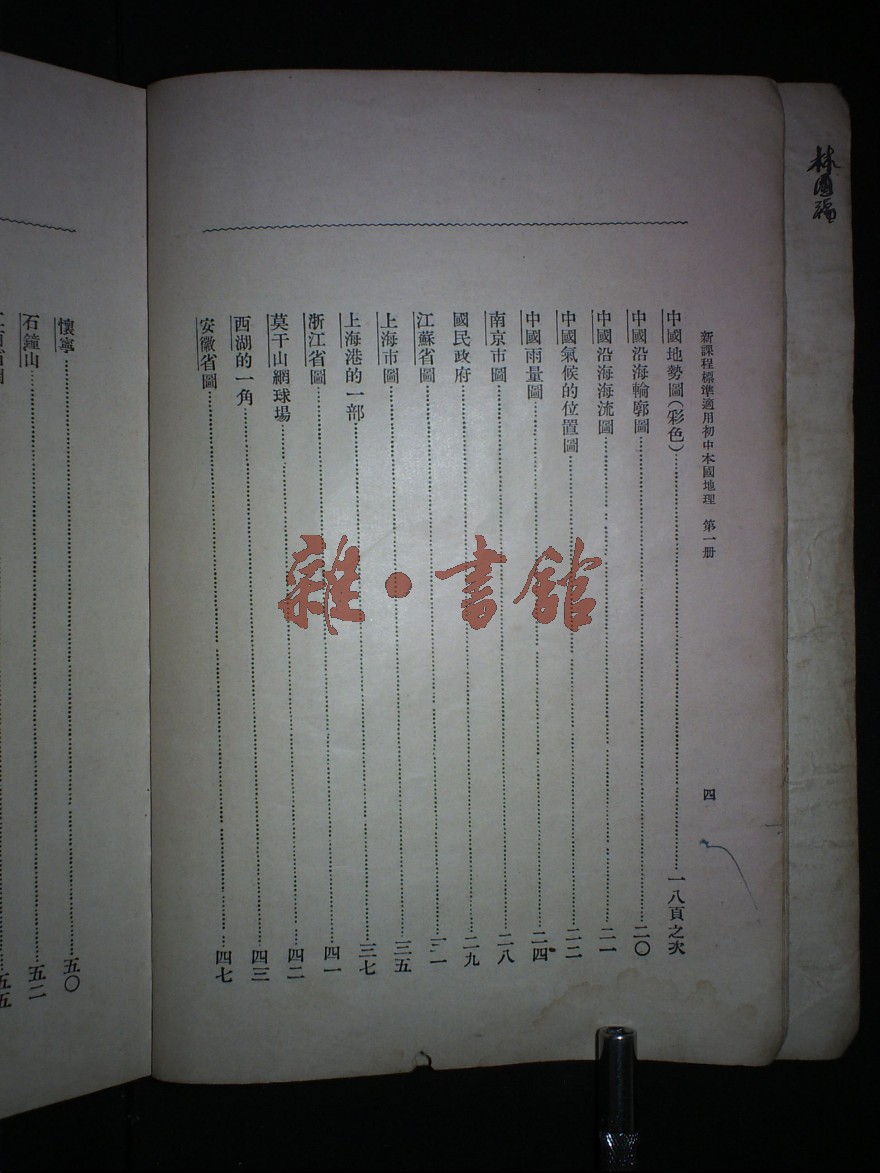 林國
新課程標準適用初中本國地理 第一册 四
中國地勢圖(彩色)……一八頁之次
中國沿海輪廓圖……二〇
中國沿海海流圖……二一
中國氣候的位置圖……二二
中國雨量圖……二四
南京市圖……二八
國民政府……二九
江蘇省圖……
上海市圖……三五
上海港的一部……三七
浙江省圖……四一
莫干山網球場……四二
西湖的一角……四三
安徽省圖……四七
懷寧……五〇
石鐘山……五二
五五
雜·書館